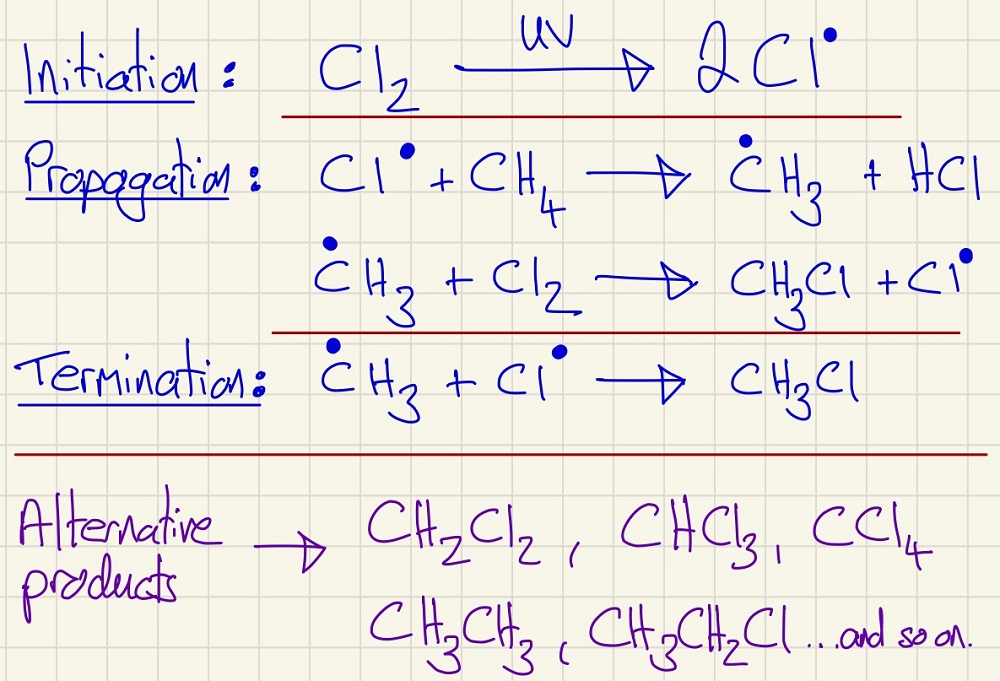 UV
Initiation: Cl₂ → 2Cl•
Propagation: Cl• + CH₄ → •CH₃ + HCl
•CH₃ + Cl₂ → CH₃Cl + Cl•
Termination: •CH₃ + Cl• → CH₃Cl
Alternative products → CH₂Cl₂, CHCl₃, CCl₄
CH₃CH₃, CH₃CH₂Cl ...and so on.